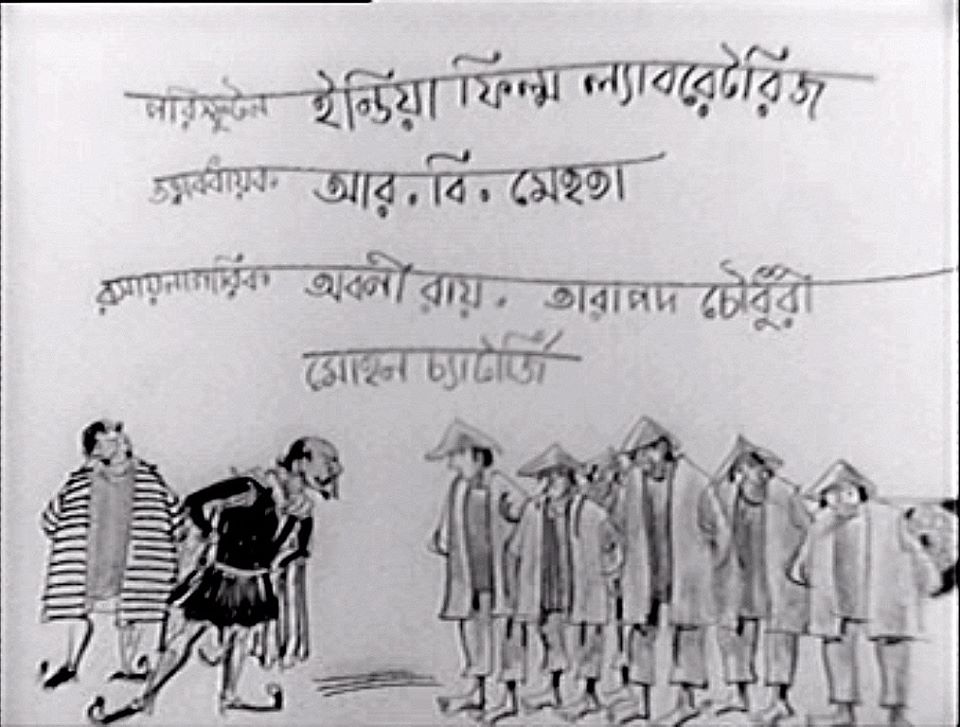 পরিস্ফুটন ইন্ডিয়া ফিল্ম ল্যাবরেটরিজ
তত্ত্বাবধায়ক আর. বি. মেহতা
রসায়নাগারিক অবনী রায়. তারাপদ চৌধুরী
মোহন চ্যাটার্জি